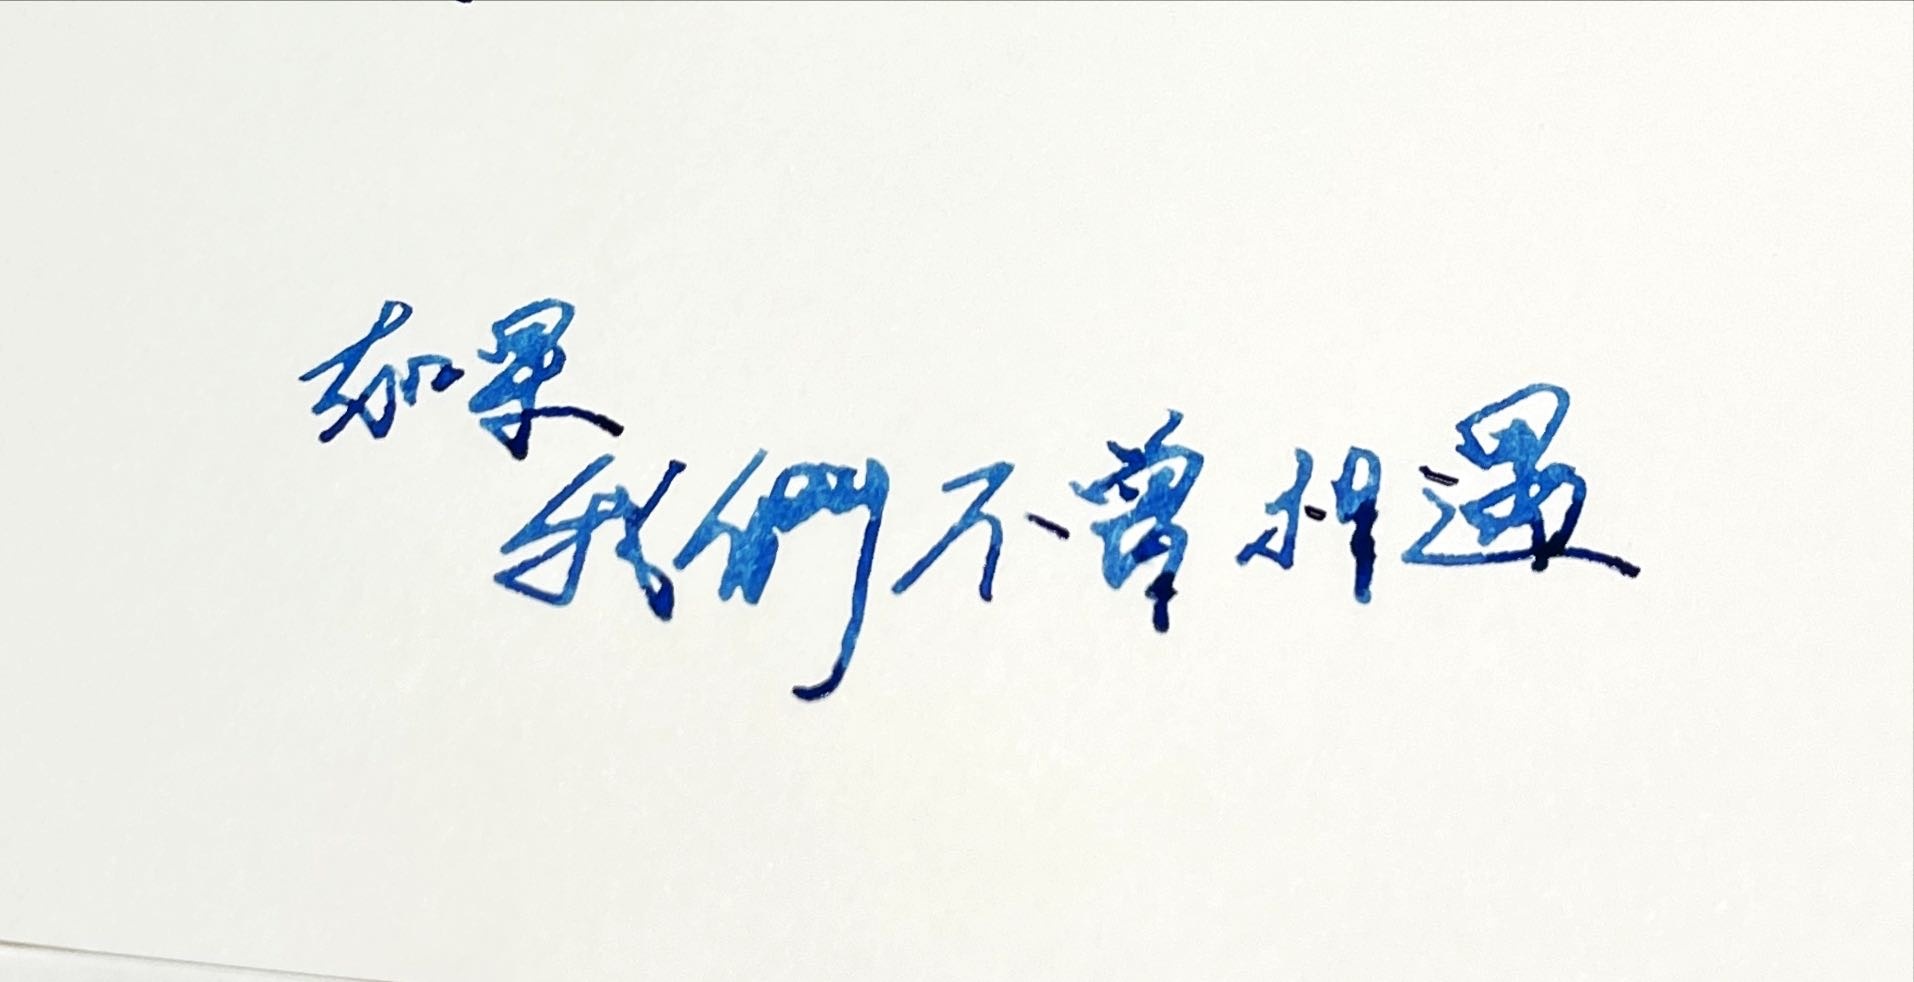 如果
我們不曾相遇